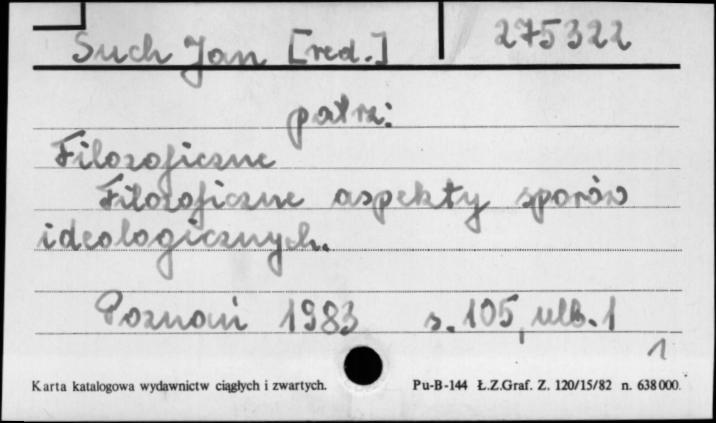 Such Jan [red.] 275322
patrz:
Filozoficzne
Filozoficzne aspekty sporów
ideologicznych.
Poznań 1983 s. 105, nlb. 1
1
Karta katalogowa wydawnictw ciągłych i zwartych. Pu-B-144 Ł.Z.Graf. Z. 120/15/82 n. 638000.